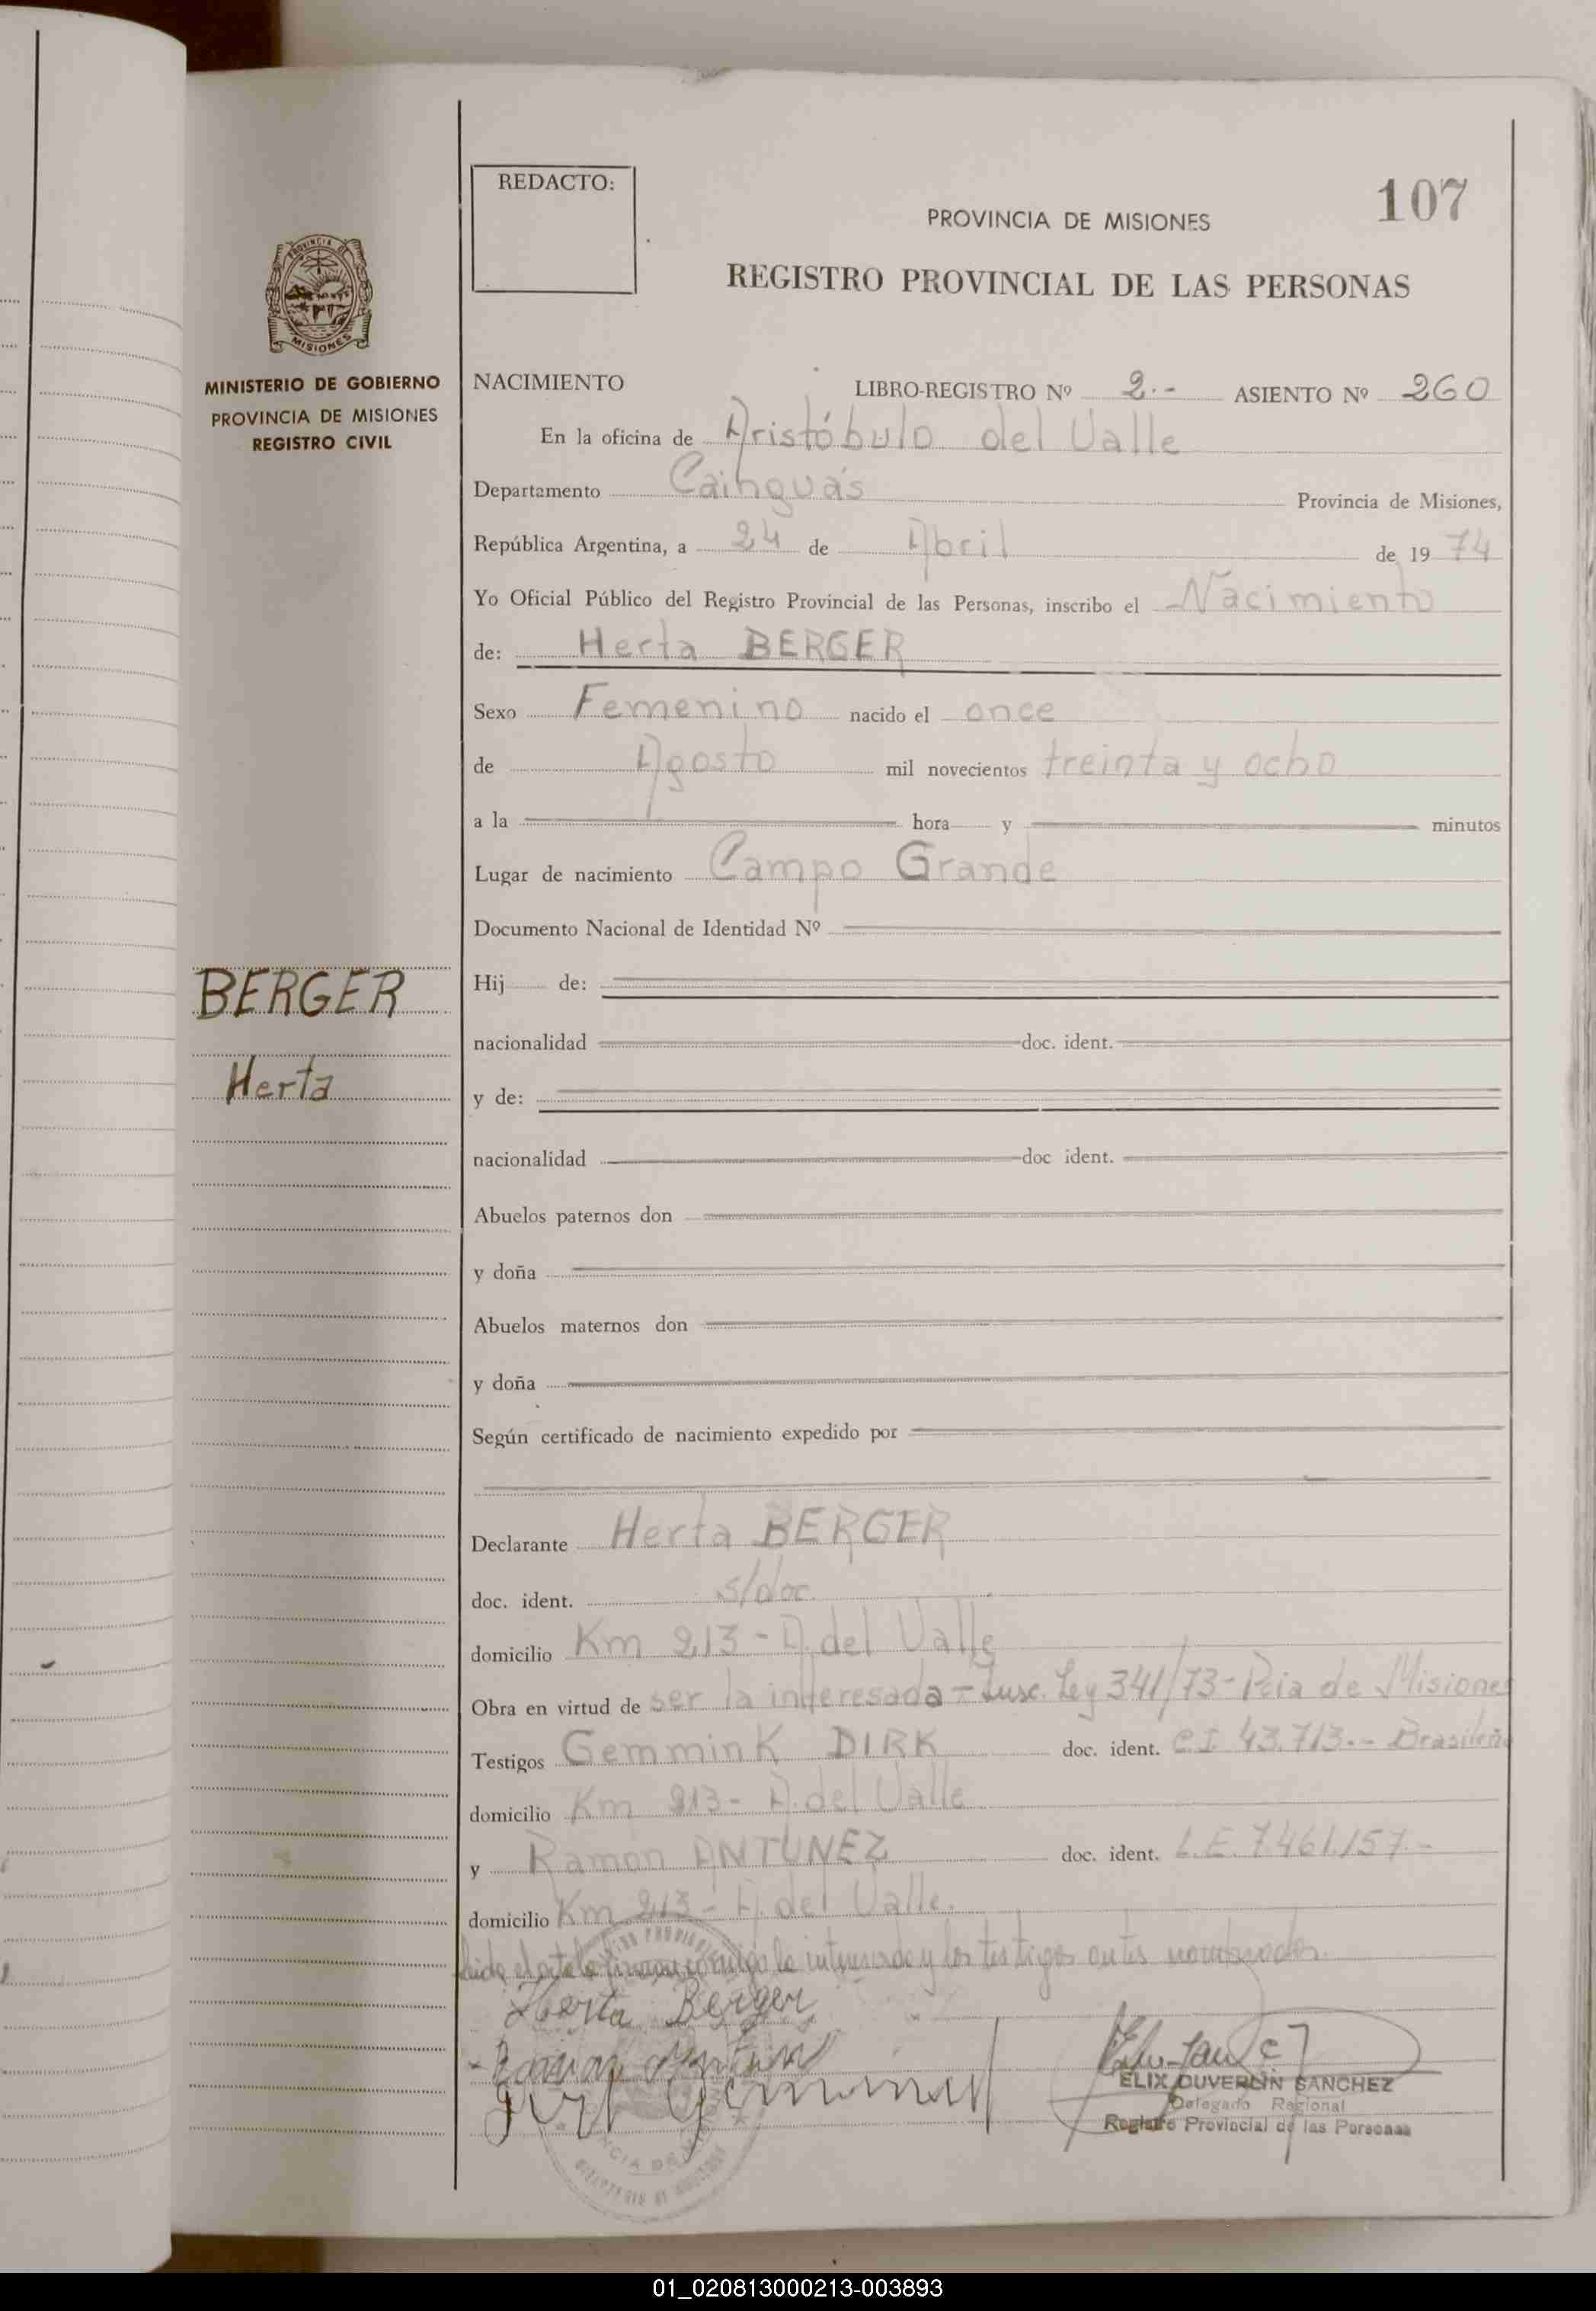 REDACTO:
107
PROVINCIA DE MISIONES
REGISTRO PROVINCIAL DE LAS PERSONAS
PROVINCIA DE
MISIONES
MINISTERIO DE GOBIERNO
PROVINCIA DE MISIONES
REGISTRO CIVIL
NACIMIENTO LIBRO-REGISTRO Nº 2.- ASIENTO Nº 260
En la oficina de Aristóbulo del Valle
Departamento Cainguás Provincia de Misiones,
República Argentina, a 24 de Abril de 1974
Yo Oficial Público del Registro Provincial de las Personas, inscribo el Nacimiento
de: Herta BERGER
Sexo Femenino nacido el once
de Agosto mil novecientos treinta y ocho
a la hora y minutos
Lugar de nacimiento Campo Grande
Documento Nacional de Identidad Nº
BERGER
Herta
Hij de:
nacionalidad doc. ident.
y de:
nacionalidad doc ident.
Abuelos paternos don
y doña
Abuelos maternos don
y doña
Según certificado de nacimiento expedido por
Declarante Herta BERGER
doc. ident. s/doc.
domicilio Km 213 - A. del Valle
Obra en virtud de ser la interesada - Insc. Ley 341/73 - Pcia de Misiones
Testigos Gemmink DIRK doc. ident. C.I 43.713.- Brasileño
domicilio Km 213 - A. del Valle
y Ramon ANTUNEZ doc. ident. L.E. 7.461.157.-
domicilio Km 213 - A. del Valle.
leida el acta la firman conmigo la interesada y los testigos antes nombrados.
Herta Berger
Ramon
ELIX DUVERLIN SANCHEZ
Delegado Regional
Registro Provincial de las Personas
01_020813000213-003893